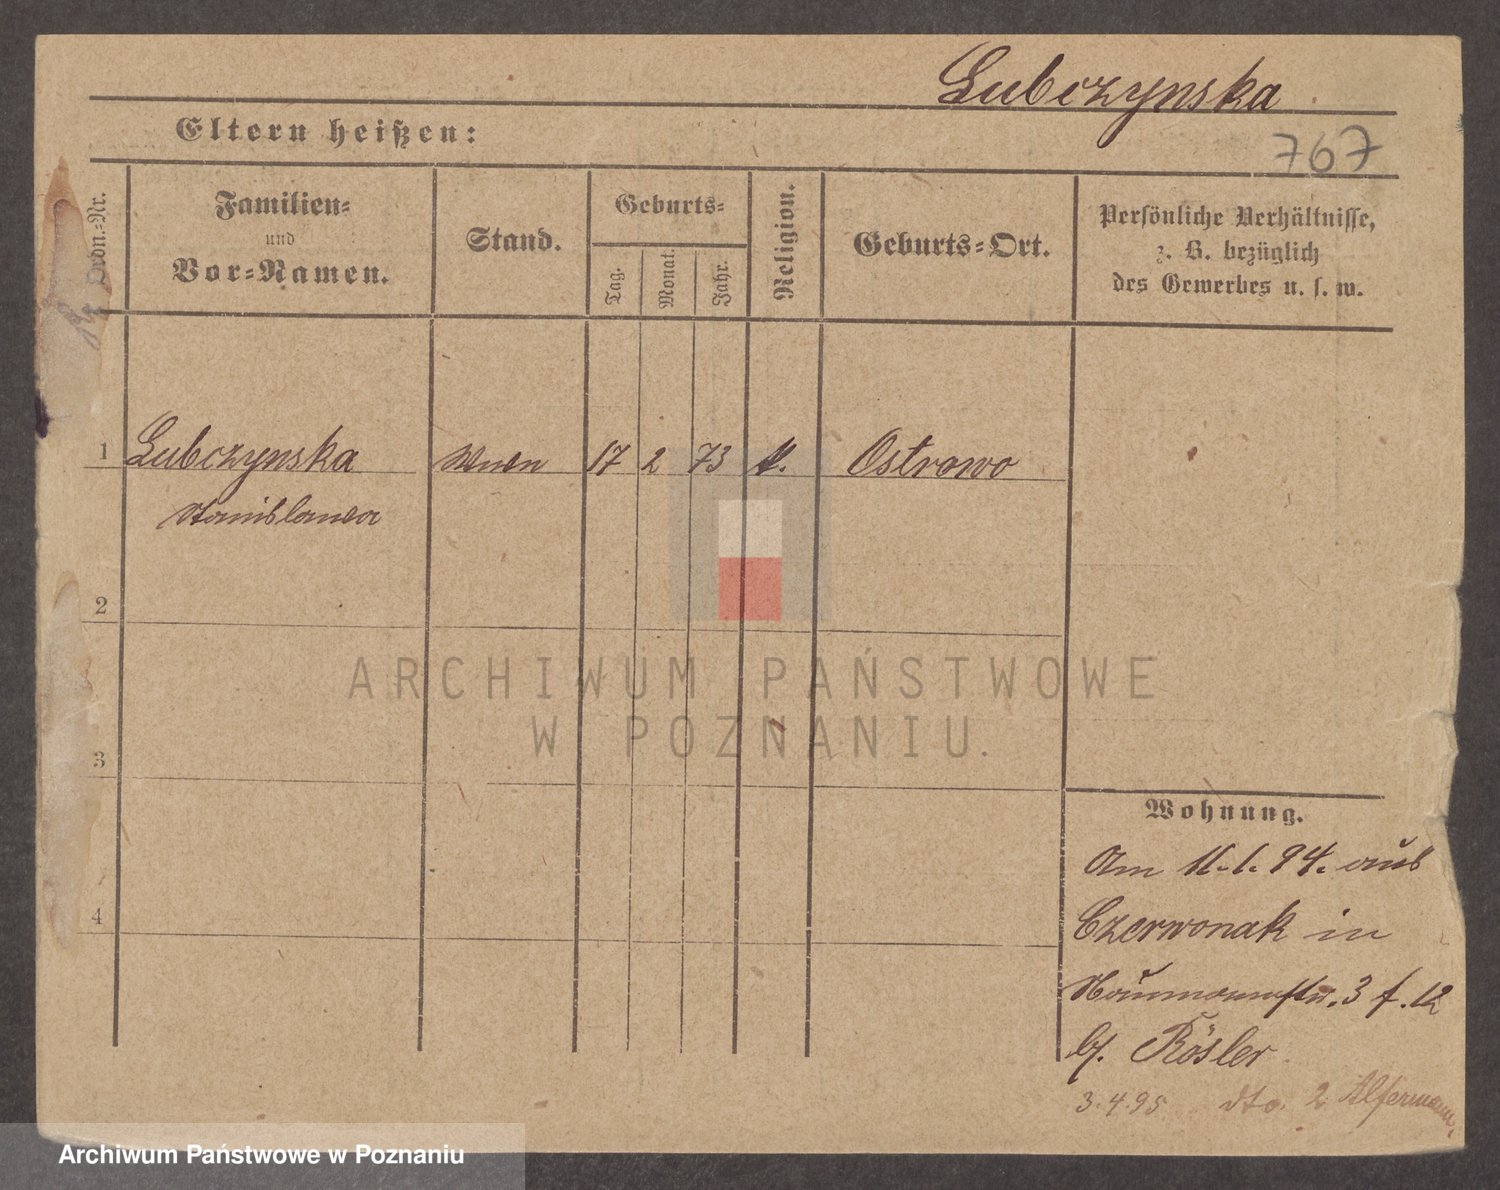 Lubczynska
Eltern heißen:
767
Ordn.-Nr.
Familien-
und
Vor-Namen.
Stand.
Geburts-
Tag.
Monat.
Jahr.
Religion.
Geburts-Ort.
Persönliche Verhältnisse,
z. B. bezüglich
des Gewerbes u. s. w.
1 Lubczynska 17 2 73 k. Ostrowo
Stanislawa
2
ARCHIWUM PAŃSTWOWE
W POZNANIU.
3
Wohnung.
Am 11.1.94. aus
4
Czerwonak in
Naumannstr. 3 f. 12
bf. Rösler
3.4.95 dto. 2 Alfermann,
Archiwum Państwowe w Poznaniu